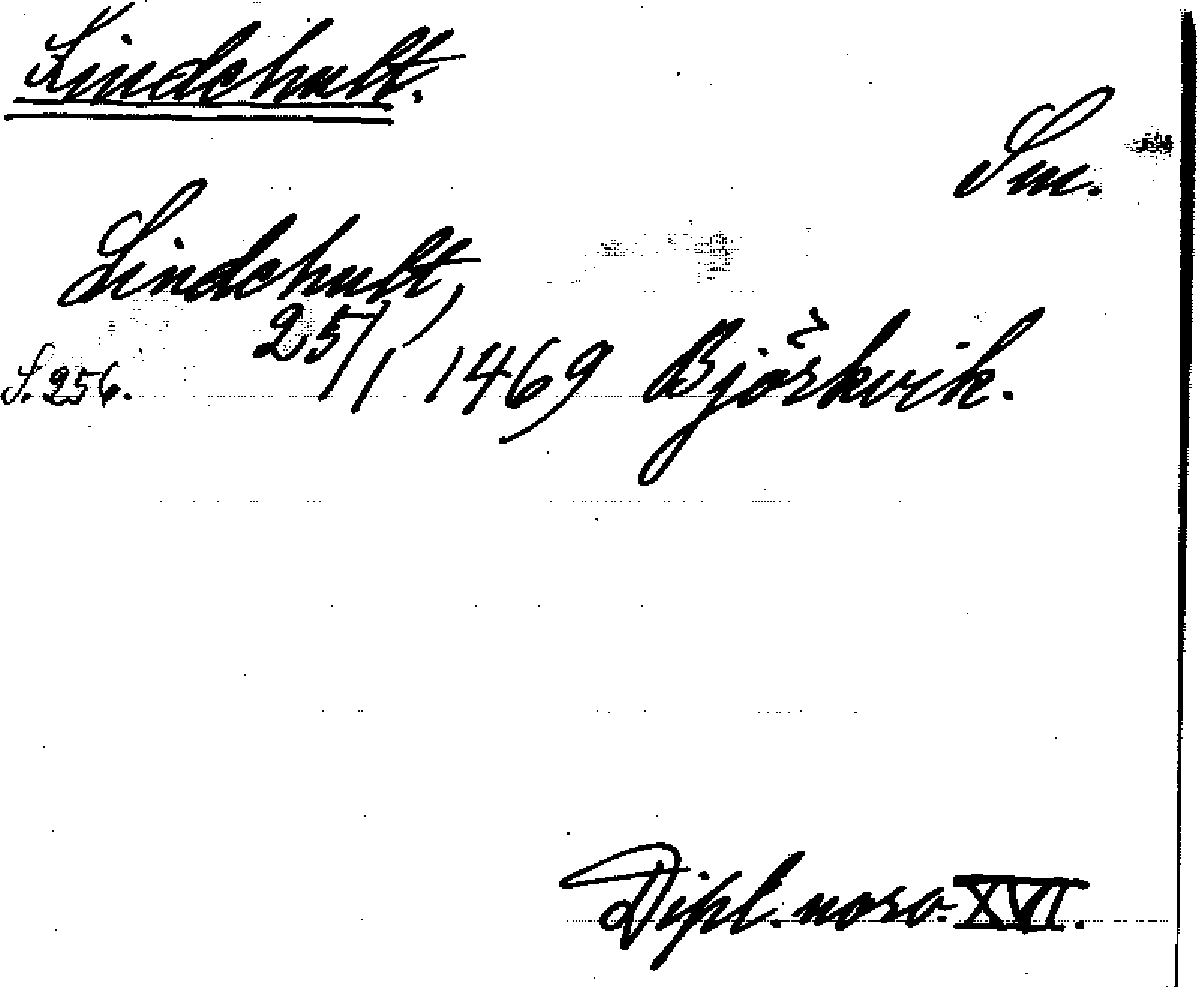 Lindehult.
Sm.
Lindehult,
S. 256. 25/1 1469 Björkvik.
Dipl. norv. XVI.